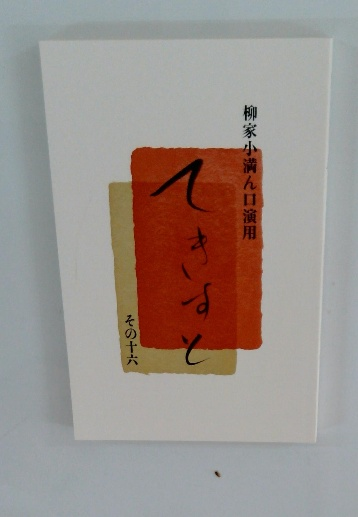 柳家小満ん口演用
てきすと
その十六